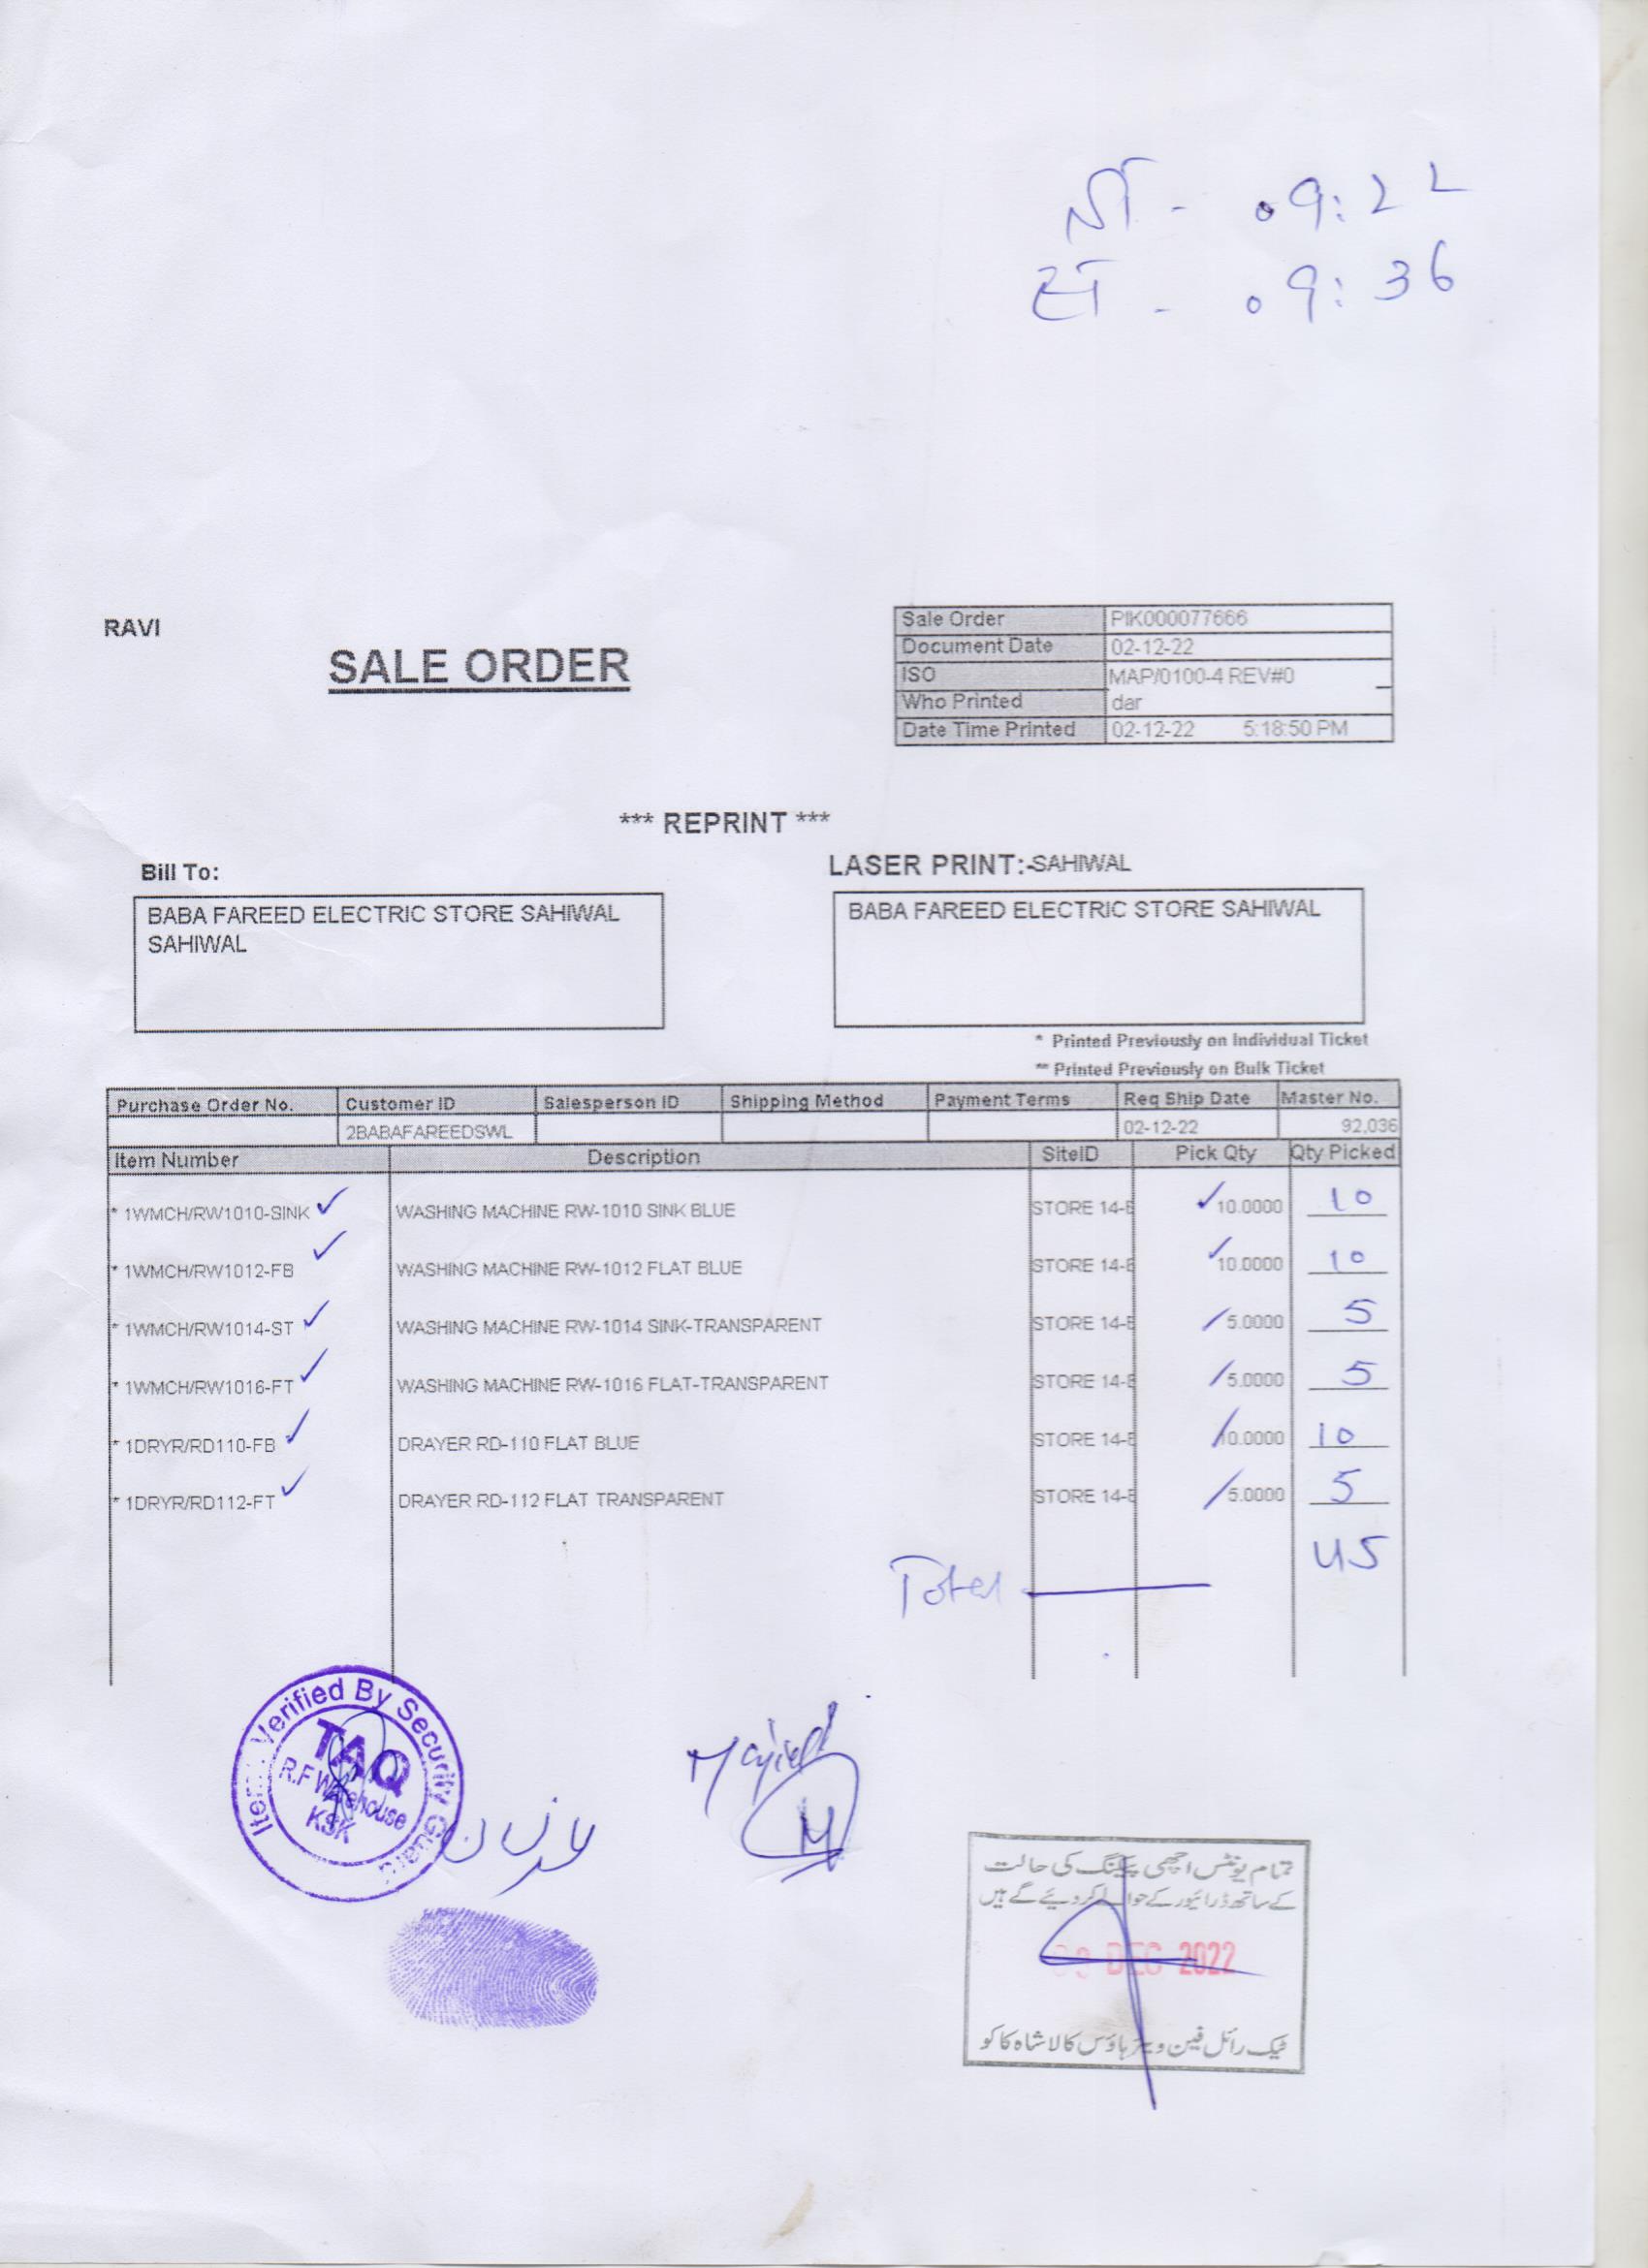 ST - 09:22
ET - 09:36
RAVI
SALE ORDER
Sale Order PIK000077666
Document Date 02-12-22
ISO MAP/0100-4 REV#0
Who Printed dar
Date Time Printed 02-12-22 5:18:50 PM
*** REPRINT ***
Bill To:
LASER PRINT:-SAHIWAL
BABA FAREED ELECTRIC STORE SAHIWAL
SAHIWAL
BABA FAREED ELECTRIC STORE SAHIWAL
* Printed Previously on Individual Ticket
** Printed Previously on Bulk Ticket
Purchase Order No. Customer ID Salesperson ID Shipping Method Payment Terms Req Ship Date Master No.
2BABAFAREEDSWL 02-12-22 92,036
Item Number Description SiteID Pick Qty Qty Picked
* 1WMCH/RW1010-SINK WASHING MACHINE RW-1010 SINK BLUE STORE 14-E 10.0000 10
* 1WMCH/RW1012-FB WASHING MACHINE RW-1012 FLAT BLUE STORE 14-E 10.0000 10
* 1WMCH/RW1014-ST WASHING MACHINE RW-1014 SINK-TRANSPARENT STORE 14-E 5.0000 5
* 1WMCH/RW1016-FT WASHING MACHINE RW-1016 FLAT-TRANSPARENT STORE 14-E 5.0000 5
* 1DRYR/RD110-FB DRAYER RD-110 FLAT BLUE STORE 14-E 10.0000 10
* 1DRYR/RD112-FT DRAYER RD-112 FLAT TRANSPARENT STORE 14-E 5.0000 5
Total 45
Items Verified By Security Guard
TAQ
R.F Warehouse
KSK
Majid
M
تمام یونٹس اچھی پیکنگ کی حالت
کے ساتھ ڈرائیور کے حوالے کر دیئے گے ہیں
DEC 2022
ٹیک رائل فین ویئر ہاؤس کالا شاہ کاکو